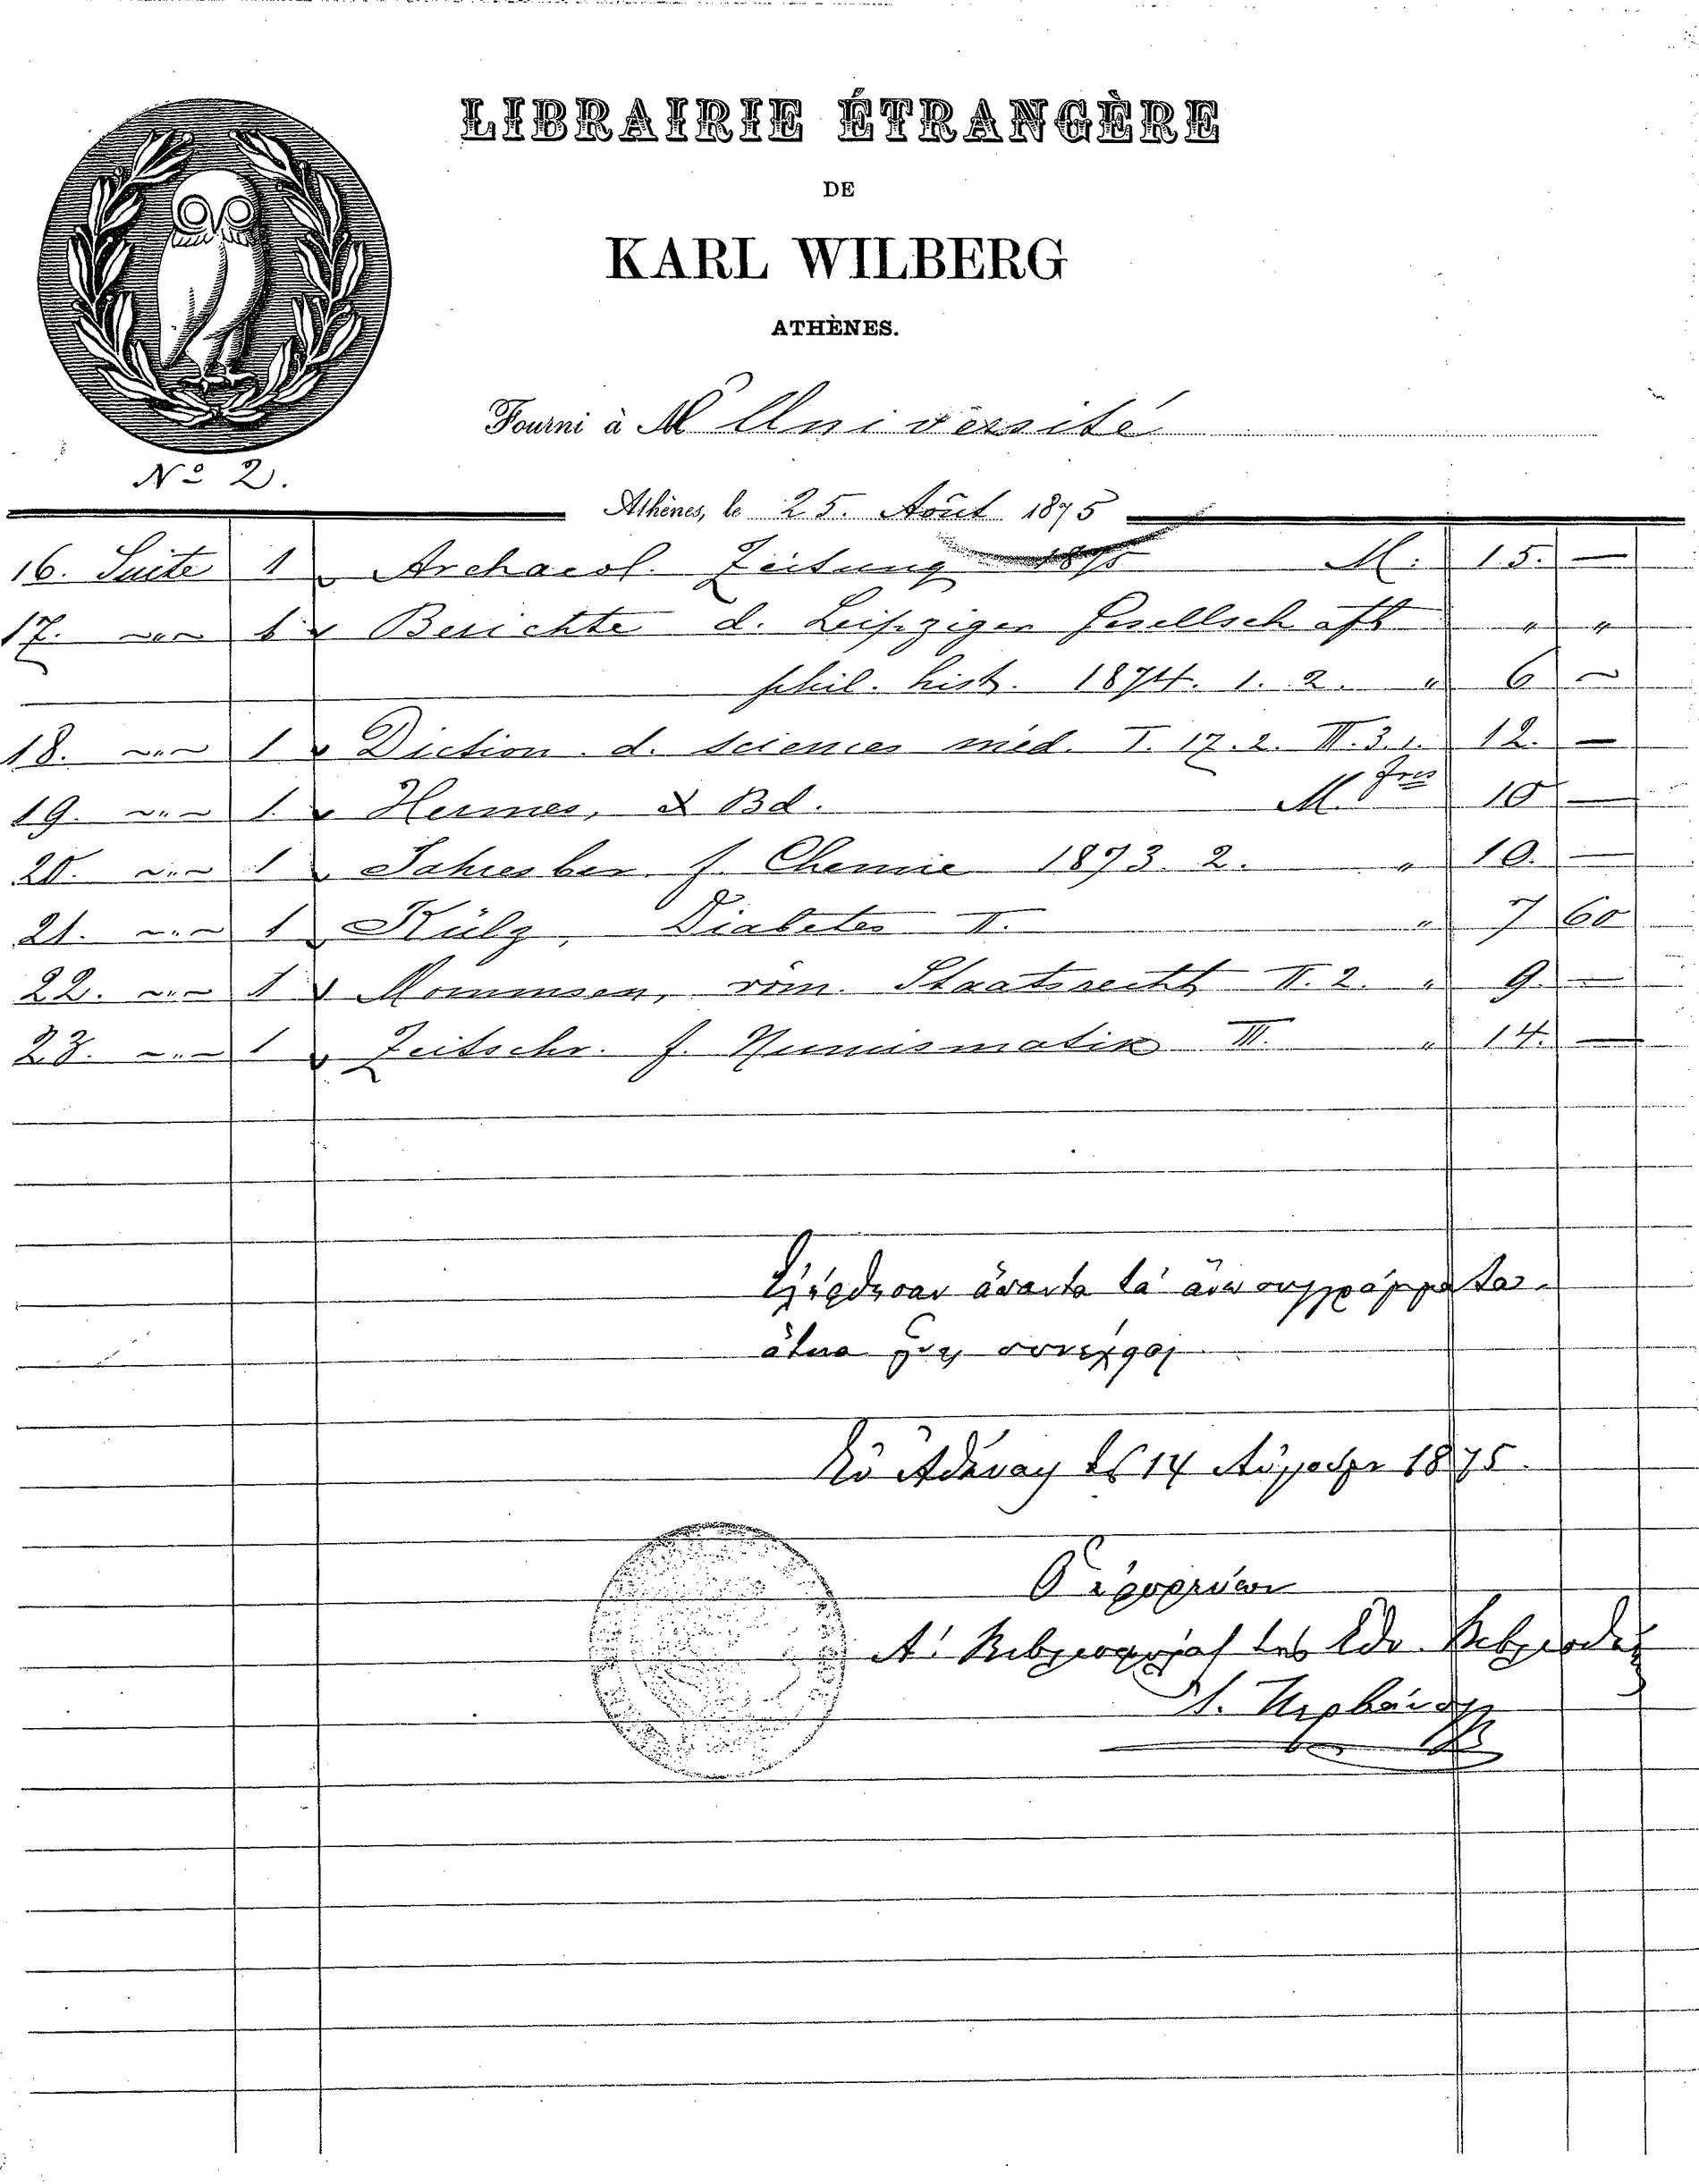 LIBRAIRIE ÉTRANGÈRE
DE
KARL WILBERG
ATHÈNES.
Fourni à M l'Université
No 2.
Athènes, le 25. Août 1875
16. Suite 1 Archaeol. Zeitung 1875 M. 15. —
17. ~"~ 1 Berichte d. Leipziger Gesellschaft " "
phil. hist. 1874. 1. 2. " 6 ~
18. ~"~ 1 Diction. d. sciences méd. I. 17. 2. III. 3. 1. frcs 12. —
19. ~"~ 1. Hermes, X Bd. M. 10 —
20. ~"~ 1 Jahresber. f. Chemie 1873. 2. " 10. —
21. ~"~ 1 Külz, Diabetes II. " 7 60
22. ~"~ 1 Mommsen, röm. Staatsrecht II. 2. " 9. —
23. ~"~ 1 Zeitschr. f. Numismatik III. " 14. —
ἅπαντα τὰ ἄνω συγγράμματα
ἅτινα
Ἐν Ἀθήναις τῇ 14 Αὐγούστου 1875.
Ὁ ἐφορεύων
Α′. Βιβλιοφύλαξ τῆς Ἐθν. Βιβλιοθήκης